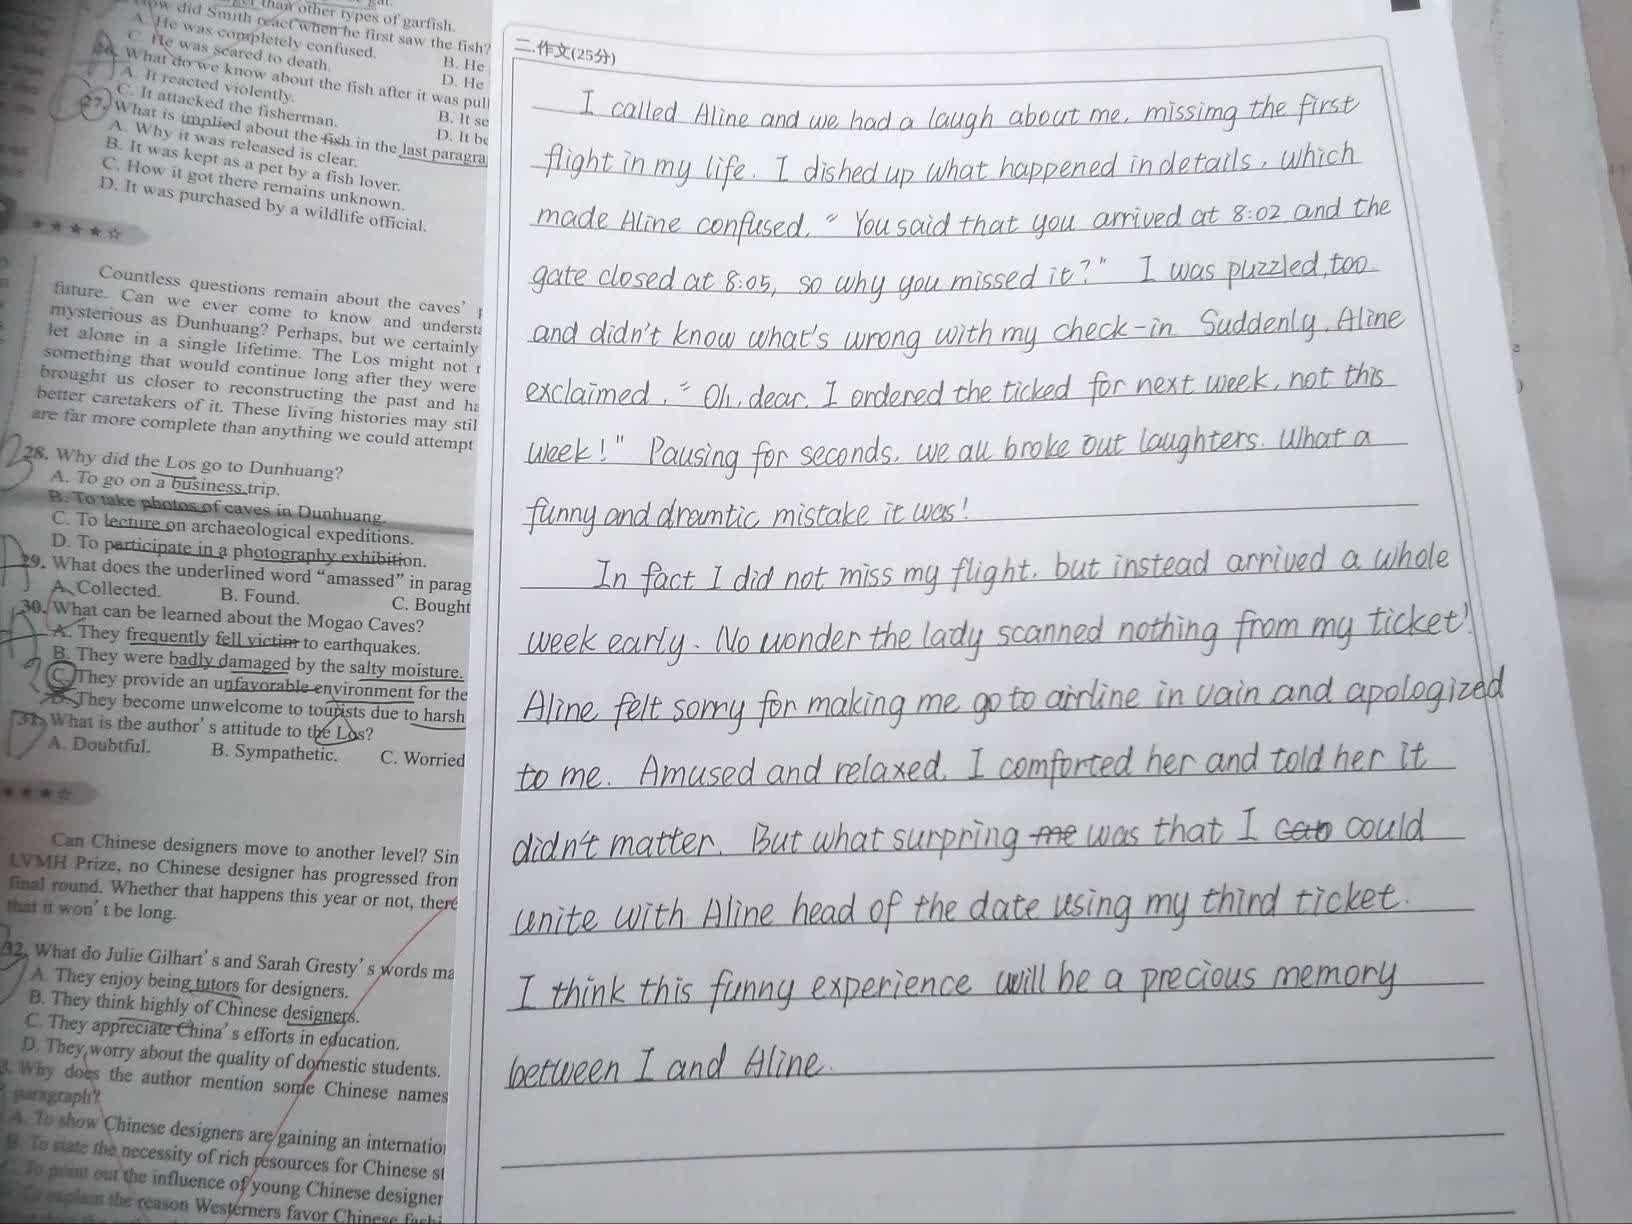 than other types of garfish.
How did Smith react when he first saw the fish?
A. He was completely confused.
B. He
C. He was scared to death.
D. He
26. What do we know about the fish after it was pull
A. It reacted violently.
B. It se
C. It attacked the fisherman.
D. It be
27. What is implied about the fish in the last paragra
A. Why it was released is clear.
B. It was kept as a pet by a fish lover.
C. How it got there remains unknown.
D. It was purchased by a wildlife official.
★★★★☆
Countless questions remain about the caves'
future. Can we ever come to know and understa
mysterious as Dunhuang? Perhaps, but we certainly
let alone in a single lifetime. The Los might not
something that would continue long after they were
brought us closer to reconstructing the past and ha
better caretakers of it. These living histories may stil
are far more complete than anything we could attempt
28. Why did the Los go to Dunhuang?
A. To go on a business trip.
B. To take photos of caves in Dunhuang.
C. To lecture on archaeological expeditions.
D. To participate in a photography exhibition.
29. What does the underlined word "amassed" in parag
A. Collected. B. Found. C. Bought
30. What can be learned about the Mogao Caves?
A. They frequently fell victim to earthquakes.
B. They were badly damaged by the salty moisture.
C. They provide an unfavorable environment for the
D. They become unwelcome to tourists due to harsh
31. What is the author's attitude to the Los?
A. Doubtful. B. Sympathetic. C. Worried
★★★☆
Can Chinese designers move to another level? Sin
LVMH Prize, no Chinese designer has progressed from
final round. Whether that happens this year or not, there
that it won't be long.
32. What do Julie Gilhart's and Sarah Gresty's words ma
A. They enjoy being tutors for designers.
B. They think highly of Chinese designers.
C. They appreciate China's efforts in education.
D. They worry about the quality of domestic students.
Why does the author mention some Chinese names
paragraph?
A. To show Chinese designers are gaining an internatio
B. To state the necessity of rich resources for Chinese st
C. To point out the influence of young Chinese designer
D. To explain the reason Westerners favor Chinese fashi
二.作文(25分)
I called Aline and we had a laugh about me, missimg the first
flight in my life. I dished up what happened in details, which
made Aline confused. "You said that you arrived at 8:02 and the
gate closed at 8:05, so why you missed it?" I was puzzled, too
and didn't know what's wrong with my check-in Suddenly, Aline
exclaimed, "Oh, dear. I ordered the ticked for next week, not this
week!" Pausing for seconds, we all broke out laughters. What a
funny and dramtic mistake it was!
In fact I did not miss my flight, but instead arrived a whole
week early. No wonder the lady scanned nothing from my ticket!
Aline felt sorry for making me go to airline in vain and apologized
to me. Amused and relaxed, I comforted her and told her it
didn't matter. But what surpring me was that I can could
unite with Aline head of the date using my third ticket.
I think this funny experience will be a precious memory
between I and Aline.